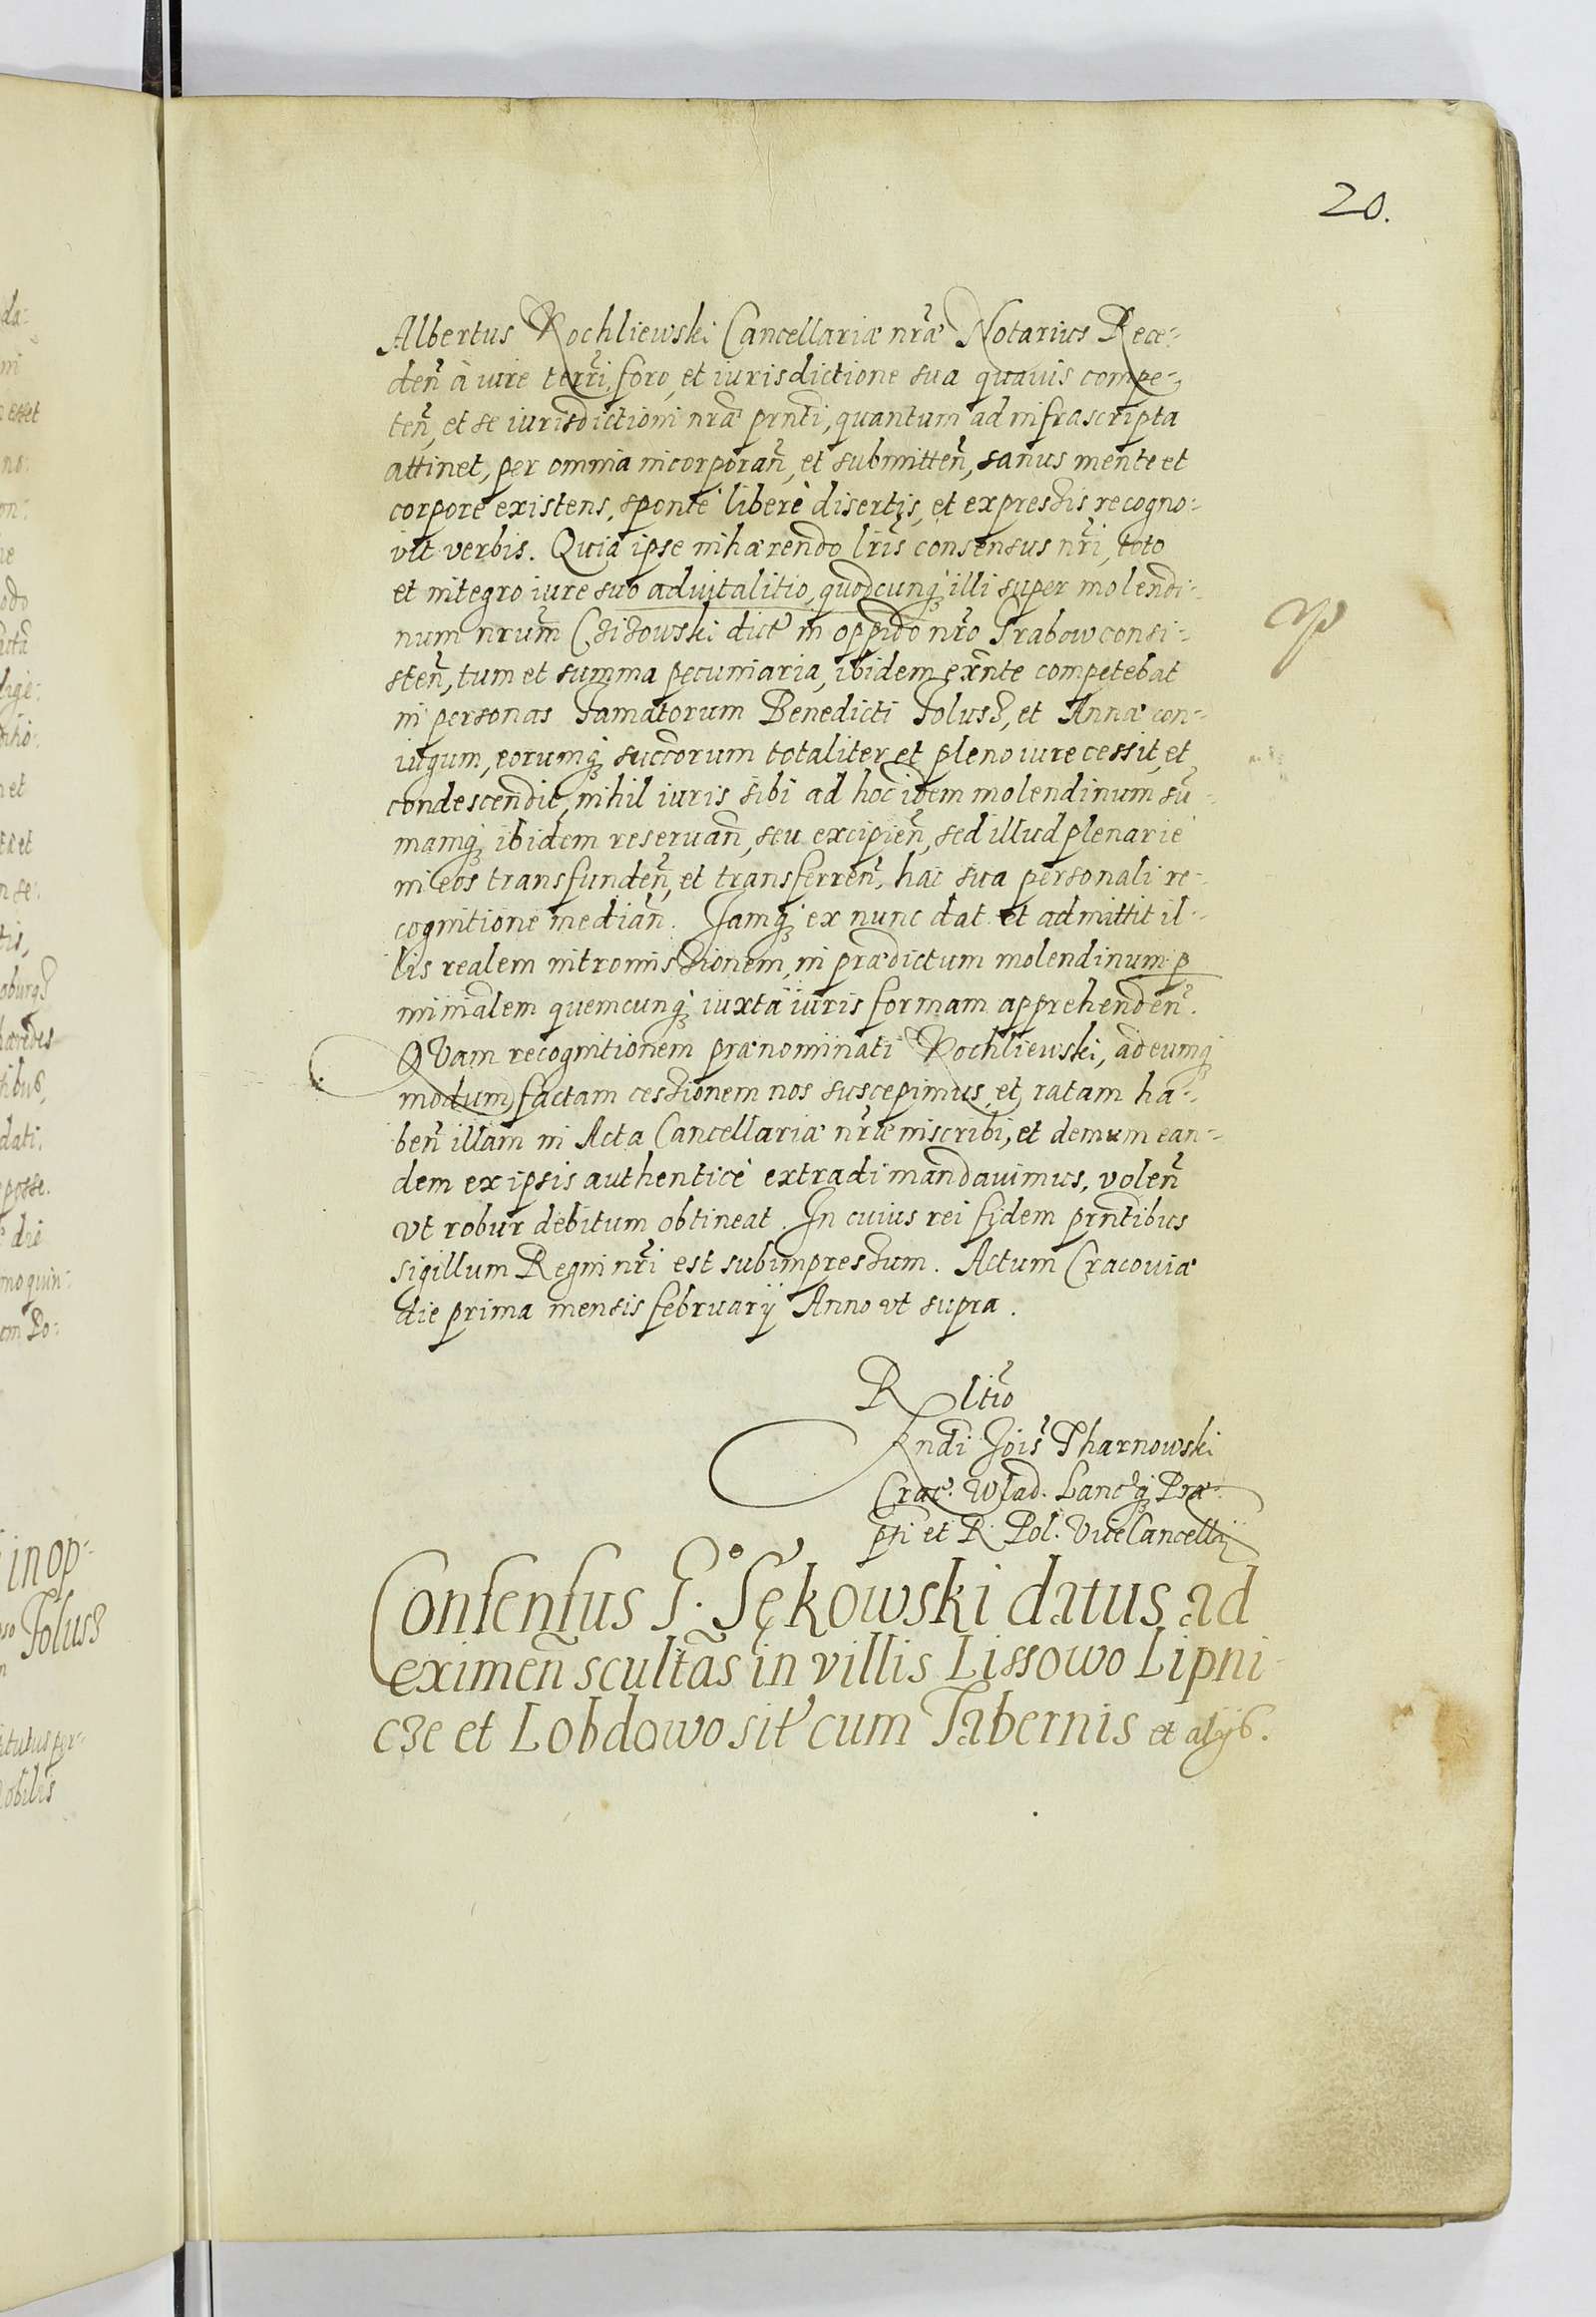 20.
Albertus Rochliewski Cancellariæ nr̃æ Notarius Rece-
deñ à iure terrĩ, foro, et iurisdictione sua quauis compe-
teñ, et se iurisdictioni nr̃æ prñti, quantum ad infrascripta
attinet, per omnia incorporañ, et submitteñ, sanus mente et
corpore existens, sponte liberè disertis, et expressis recogno-
uit verbis. Quia ipse inhærendo lr̃is consensus nr̃i, toto
et integro iure suo aduitalitio, quodcunq; illi super molendi-
num nrũm Cziżowski dict' in oppido nr̃o Grabow consi-
steñ, tum et summa pecuniaria, ibidem exñte competebat
in personas Famatorum Benedicti Foluss, et Annæ con-
iugum, eorumq; succorum totaliter et pleno iure cessit, et
condescendit, nihil iuris sibi ad hoc idem molendinum sũ-
mamq; ibidem reseruañ, seu excipieñ, sed illud plenariè
in eos transfundeñ, et transferreñ, hac sua personali re-
cognitione mediañ. Iamq; ex nunc dat et admittit il-
lis realem intromissionem, in prædictum molendinum p
minialem quemcunq; iuxta iuris formam apprehendeñ.
QVam recognitionem prænominati Rochliewski, ad eumq;
modum, factam cessionem nos suscepimus, et ratam ha-
beñ illam in Acta Cancellariæ nr̃æ inscribi, et demum ean-
dem ex ipsis authenticè extradi mandauimus, voleñ
vt robur debitum obtineat. In cuius rei fidem prñtibus
sigillum Regni nr̃i est subimpressum. Actum Cracouiæ
die prima mensis february Anno vt supra.
R ltĩo
Rndi Jois̃ Tharnowski
Crac'. Wlad. Lanc' q; Præ-
pti et R. Pol. ViceCancellarÿ
Consensus G. Sękowski datus ad
eximeñ scultãs in villis Lissowo Lipni-
cze et Lobdowo sit' cum Tabernis et alijs.